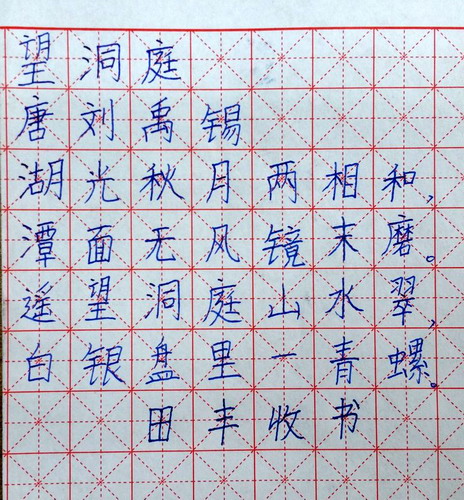 望洞庭
唐刘禹锡
湖光秋月两相和,
潭面无风镜未磨。
遥望洞庭山水翠,
白银盘里一青螺。
田丰收书